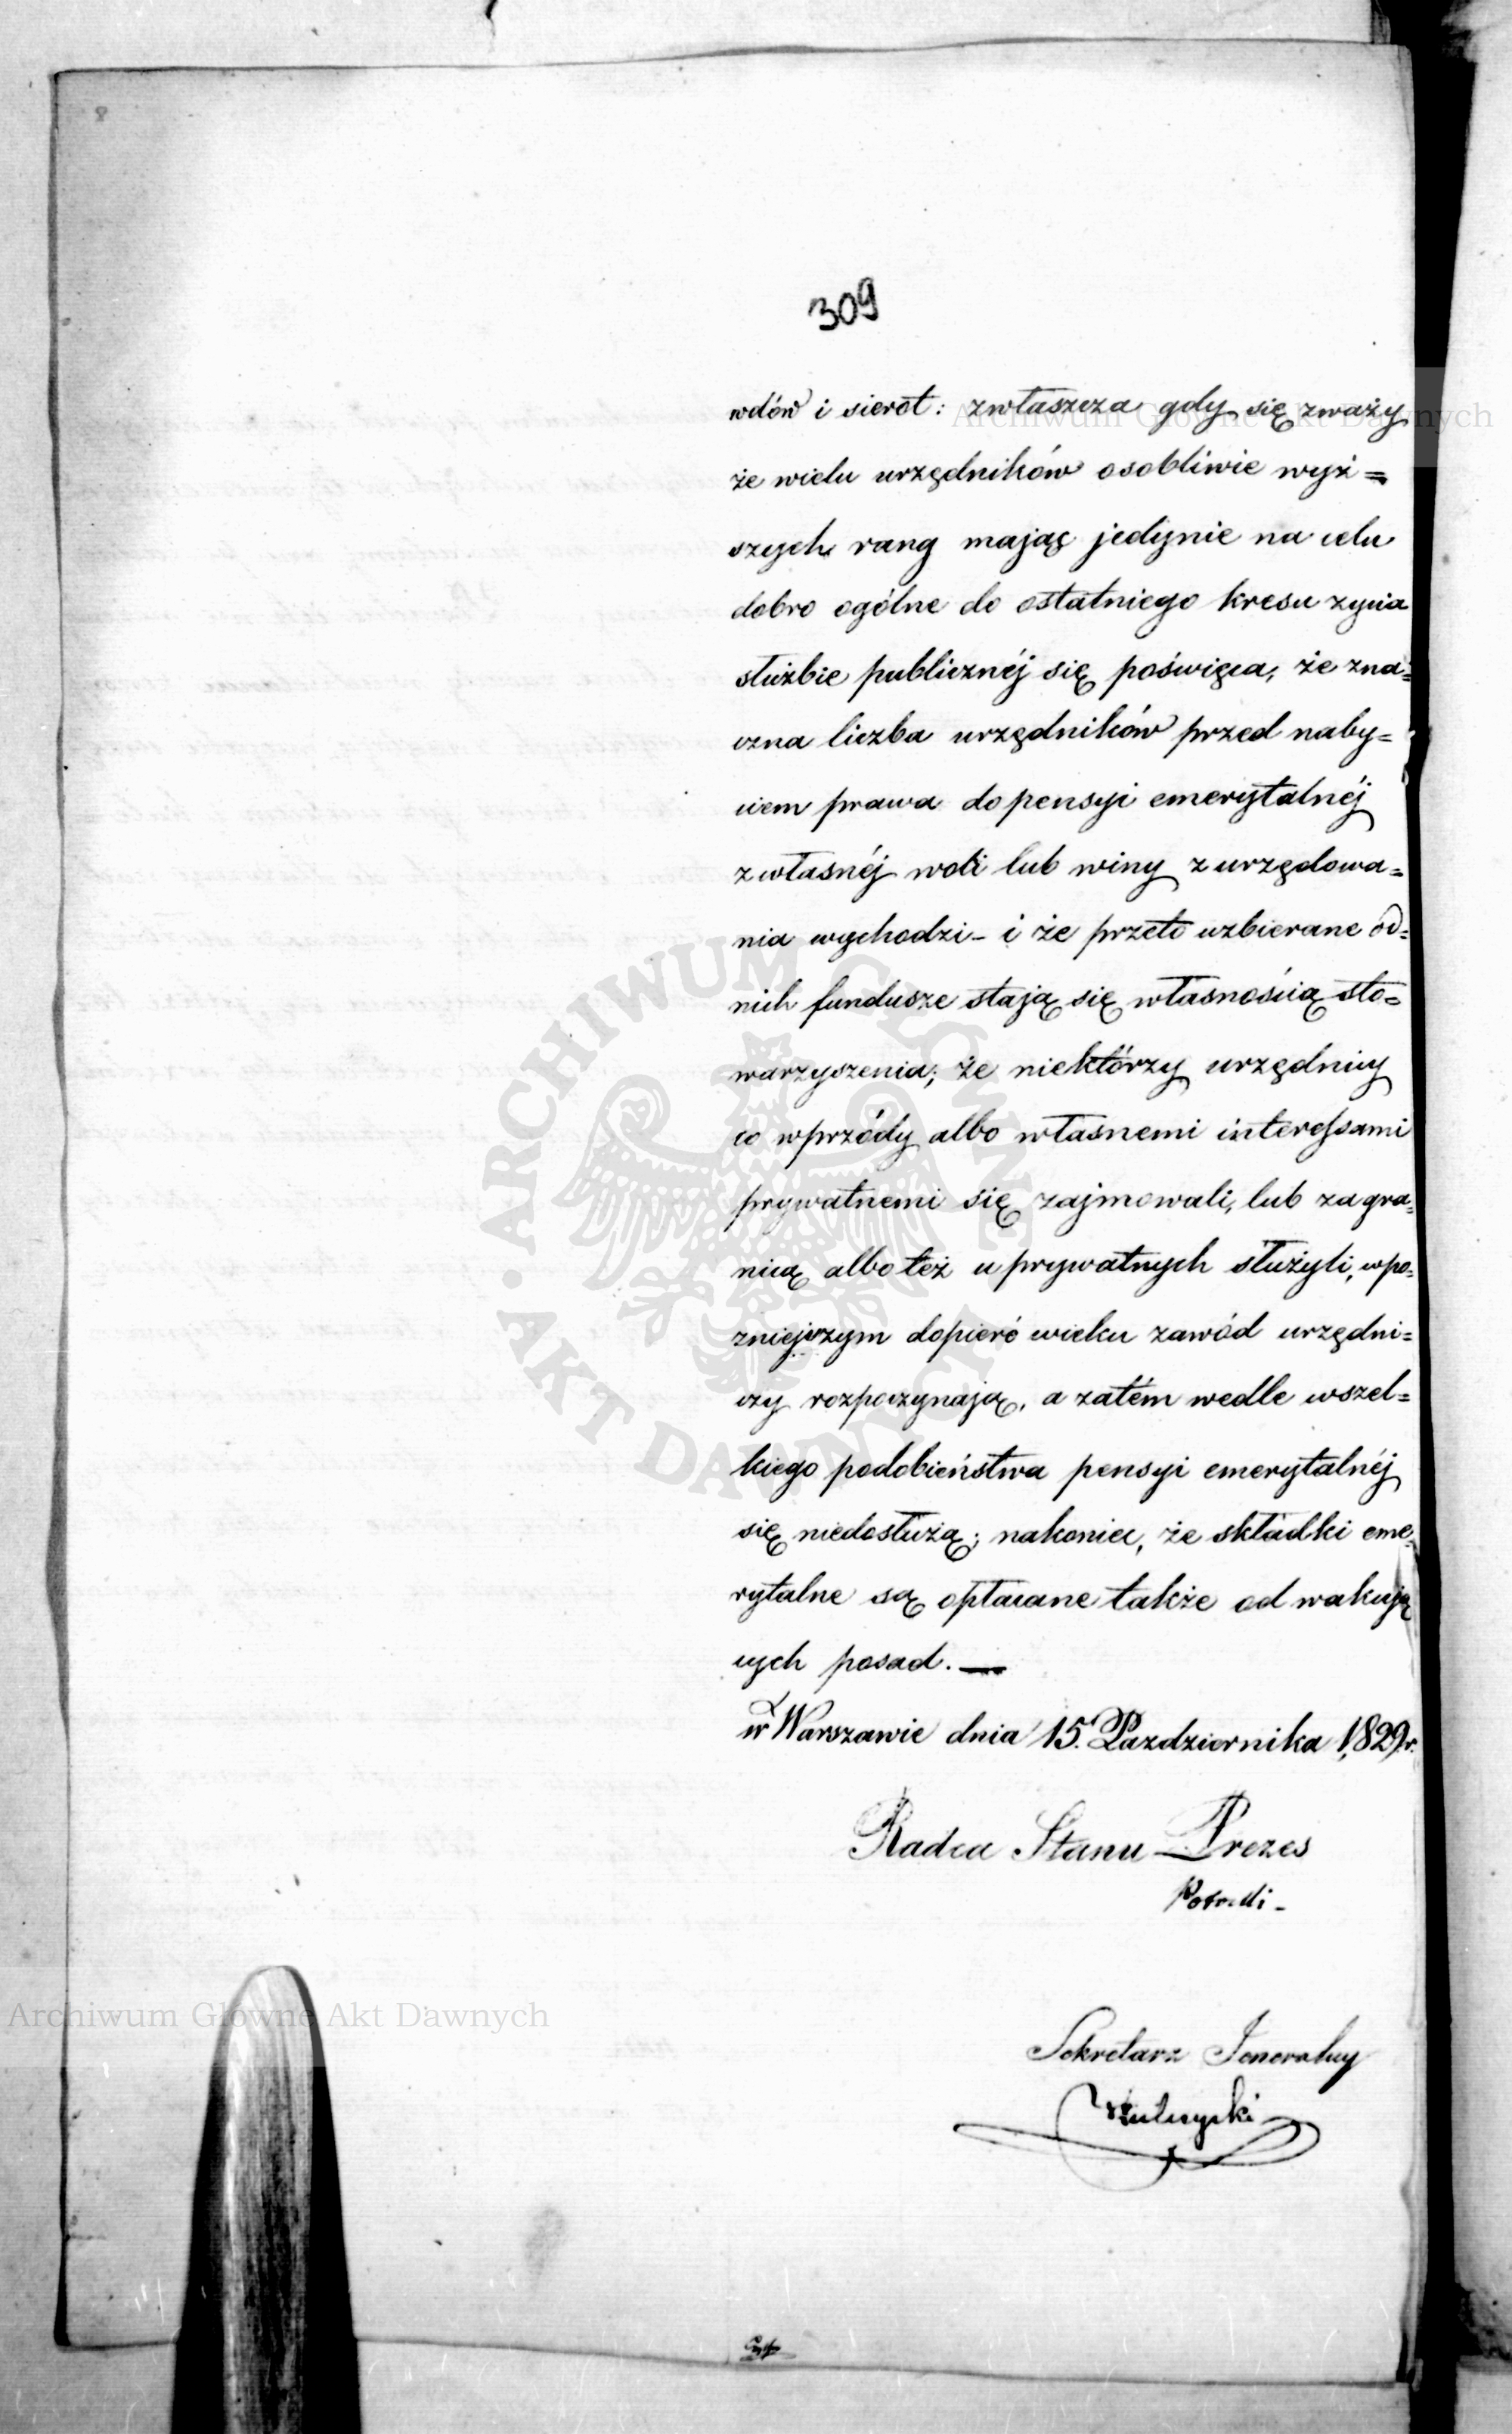 309
wdów i sierot: zwłaszcza gdy się zważy
że wielu urzędników osobliwie wyż=
szych rang mając jedynie na celu
dobro ogólne do ostatniego kresu zycia
służbie publicznéj się poświęca, że zna=
czna liczba urzędników przed naby=
ciem prawa do pensyi emerytalnéj
z własnéj woli lub winy z urzędowa=
nia wychodzi – i że przeto uzbierane od=
nich fundusze stają się własnością sto=
warzyszenia; że niektórzy urzędnicy
co wprzódy albo własnemi interessami
prywatnemi się zajmowali, lub za gra=
nicą albo też u prywatnych służyli, w po=
zniejszym dopieró wieku zawód urzędni=
czy rozpoczynają, a zatém wedle wszel=
kiego podobieństwa pensyi emerytalnéj
się niedosłużą; nakoniec, że składki eme=
rytalne są opłacane także od wakują
cych posad. —
w Warszawie dnia 15. Pazdziernika 1829 r.
Radca Stanu Prezes
Sekretarz Jeneralny
Archiwum Główne Akt Dawnych
ARCHIWUM GŁÓWNE AKT DAWNYCH
Archiwum Główne Akt Dawnych